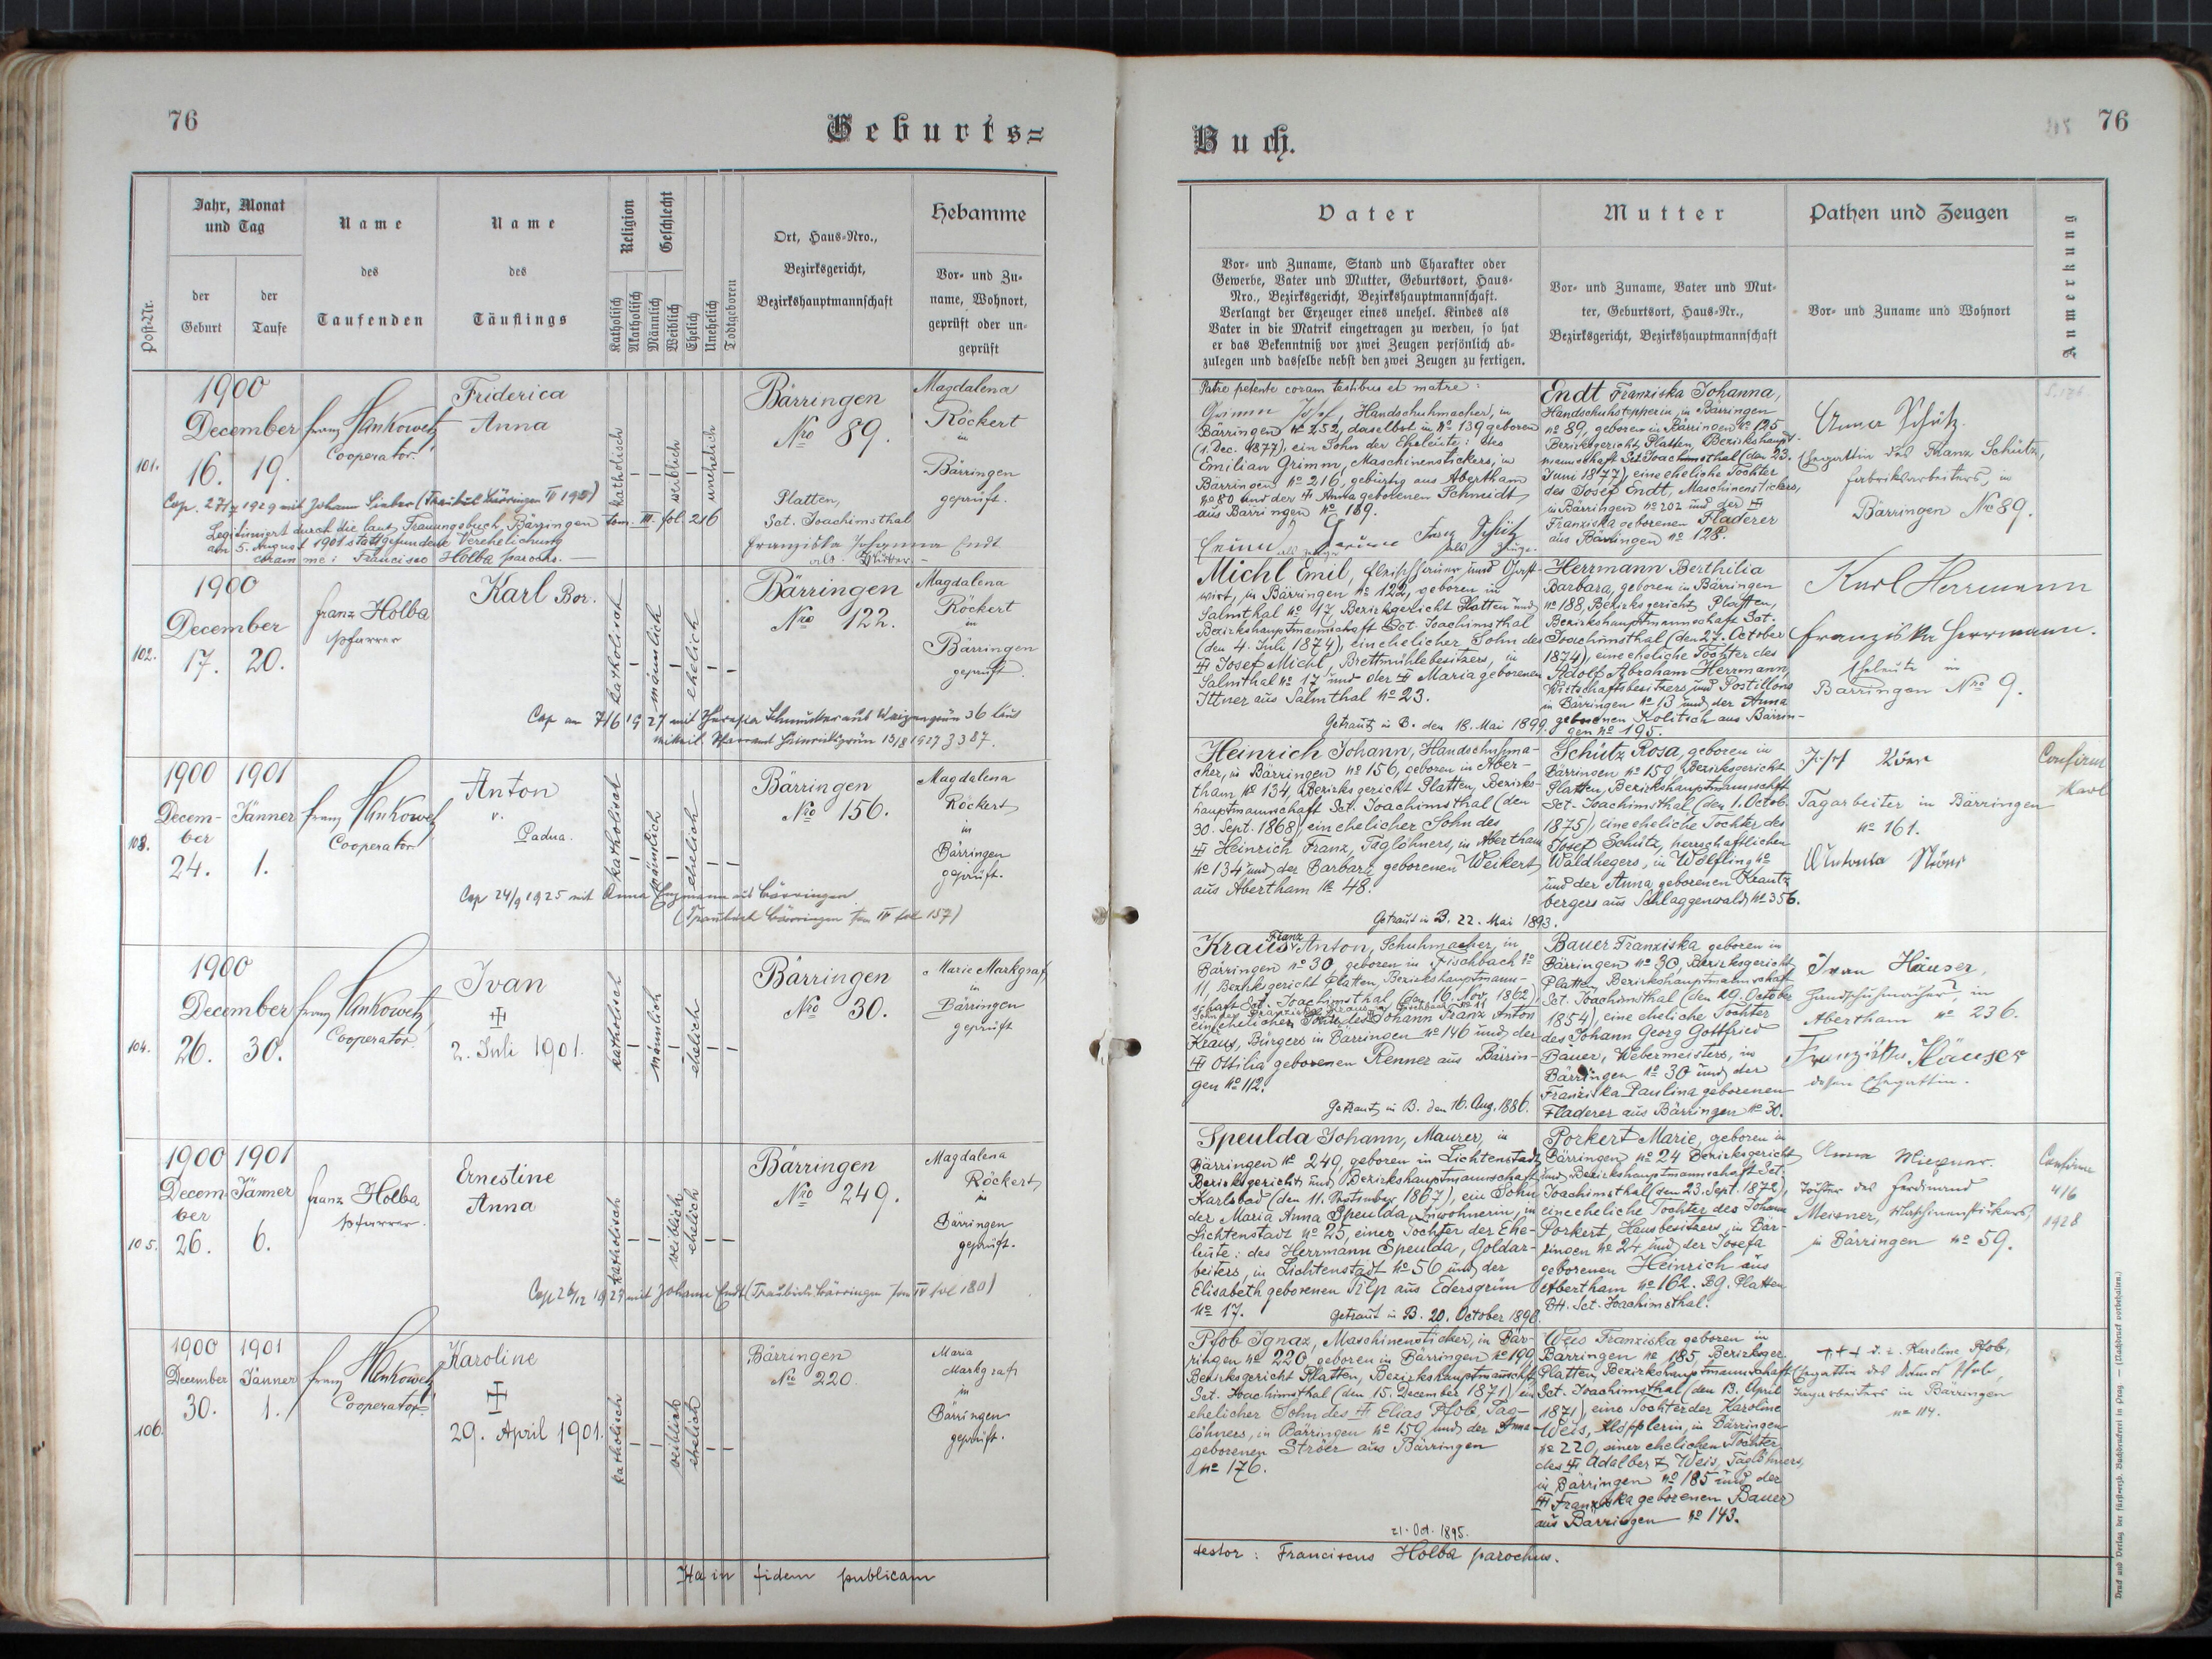 76
Geburts=
Post-Nr.
Jahr, Monat
und Tag
der
Geburt
der
Taufe
Name
des
Taufenden
Name
des
Täuflings
Religion
Katholisch
Akatholisch
Geschlecht
Männlich
Weiblich
Ehelich
Unehelich
Todtgeboren
Ort, Haus-Nro.,
Bezirksgericht,
Bezirkshauptmannschaft
Hebamme
Vor- und Zu-
name, Wohnort,
geprüft oder un-
geprüft
101.
1900
December
16. 19.
Franz
Cooperator
Friderica
Anna
katholisch
weiblich
unehelich
Bärringen
Nro 89.
Platten,
Sct. Joachimsthal
Franziska Johanna Endt
als Mutter.
Magdalena
Röckert
in
Bärringen
geprüft.
Legitimiert durch die laut Trauungsbuch Bärringen tom. III. fol. 216
am 5. August 1901 stattgefundene Verehelichung
coram me: Francisco Holba parocho.
102.
1900
December
17. 20.
Franz Holba
Pfarrer
Karl Bor.
katholisch
männlich
ehelich
Bärringen
Nro 122.
Magdalena
Röckert
in
Bärringen
geprüft.
103.
1900 1901
Decem- Jänner
ber
24. 1.
Franz
Cooperator
Anton
v.
Padua.
katholisch
männlich
ehelich
Bärringen
Nro 156.
Magdalena
Röckert
in
Bärringen
geprüft.
Cop 24/9 1925 mit Anna aus Bärringen
(Traubuch Bärringen tom IV fol 157)
104.
1900
December
26. 30.
Franz
Cooperator
Ivan
2. Juli 1901.
katholisch
männlich
ehelich
Bärringen
Nro 30.
Marie Markgraf
in
Bärringen
geprüft
105.
1900 1901
Decem Jänner
ber
26. 6.
Franz Holba
Pfarrer.
Ernestine
Anna
katholisch
weiblich
ehelich
Bärringen
Nro 249.
Magdalena
Röckert
in
Bärringen
geprüft.
mit Johann Endt (Traubuch Bärringen tom IV fol 180)
106.
1900 1901
December Jänner
30. 1.
Franz
Cooperator
Karoline
29. April 1901.
katholisch
weiblich
ehelich
Bärringen
Nro 220.
Maria
Markgraf
in
Bärringen
geprüft.
Ita in fidem publicam
Buch.
76
Vater
Vor- und Zuname, Stand und Charakter oder
Gewerbe, Vater und Mutter, Geburtsort, Haus-
Nro., Bezirksgericht, Bezirkshauptmannschaft.
Verlangt der Erzeuger eines unehel. Kindes als
Vater in die Matrik eingetragen zu werden, so hat
er das Bekenntniß vor zwei Zeugen persönlich ab-
zulegen und dasselbe nebst den zwei Zeugen zu fertigen.
Mutter
Vor- und Zuname, Vater und Mut-
ter, Geburtsort, Haus-Nr.,
Bezirksgericht, Bezirkshauptmannschaft
Pathen und Zeugen
Vor- und Zuname und Wohnort
Anmerkung
Patre petente coram testibus et matre:
Grimm Josef, Handschuhmacher, in
Bärringen No 252, daselbst in No 139 geboren
(1. Dec. 1877), ein Sohn der Eheleute: des
Emilian Grimm, Maschinenstickers, in
Bärringen No 216, gebürtig aus Abertham
No 80 und der Anna geborenen Schmidt
aus Bärringen No 189.
Franz Schütz
als Zeuge.
Endt Franziska Johanna,
Handschuhstepperin, in Bärringen
No 89, geboren in Bärringen No 125
Bezirksgericht Platten, Bezirkshaupt-
mannschaft Sct. Joachimsthal (den 23.
Juni 1877), eine eheliche Tochter
des Josef Endt, Maschinenstickers,
in Bärringen No 202 und der
Franziska geborenen Fladerer
aus Bärringen No 128.
Anna Schütz.
Ehegattin des Franz Schütz,
Fabriksarbeiters, in
Bärringen No 89.
Michl Emil, Fleischhauer und Gast-
wirt, in Bärringen No 122, geboren in
Salmthal No 17, Bezirksgericht Platten und
Bezirkshauptmannschaft Sct. Joachimsthal
(den 4. Juli 1874), ein ehelicher Sohn des
Josef Michl, Brettmühlebesitzers, in
Salmthal No 17 und der Maria geborenen
Ittner aus Salmthal No 23.
Getraut in B. den 18. Mai 1899.
Herrmann Berthilia
Barbara, geboren in Bärringen
No 188, Bezirksgericht Platten,
Bezirkshauptmannschaft Sct.
Joachimsthal (den 27. October
1874), eine eheliche Tochter des
Adolf Abraham Herrmann,
Wirtschaftsbesitzers und Postillons
in Bärringen No 13 und der Anna
gebornen Kolitsch aus Bärrin-
gen No 195.
Karl Herrmann
Franziska Herrmann.
Eheleute in
Bärringen Nro 9.
Heinrich Johann, Handschuhma-
cher, in Bärringen No 156, geboren in Aber-
tham No 134, Bezirksgericht Platten, Bezirks-
hauptmannschaft Sct. Joachimsthal (den
30. Sept. 1868), ein ehelicher Sohn des
Heinrich Franz, Taglöhners, in Abertham
No 134 und der Barbara geborenen Weikert
aus Abertham No 48.
Getraut in B. 22. Mai 1893.
Schütz Rosa, geboren in
Bärringen No 159, Bezirksgericht
Platten, Bezirkshauptmannschaft
Sct. Joachimsthal (den 1. Octob.
1875), eine eheliche Tochter des
Josef Schütz, herrschaftlichen
Waldhegers, in Wölfling No
und der Anna geborenen Krautz
bergers aus Schlaggenwald No 356.
Josef
Tagarbeiter in Bärringen
No 161.
Antonia
Confirm
Karl
Kraus Franz Anton, Schuhmacher, in
Bärringen No 30, geboren in Fischbach No
11, Bezirksgericht Platten, Bezirkshauptmann-
schaft Sct. Joachimsthal (den 16. Nov. 1862)
ein ehelicher Sohn des Johann Franz Anton
Kraus, Bürgers in Bärringen No 146 und der
Ottilia geborenen Renner aus Bärrin-
gen No 112.
Getraut in B. den 16. Aug. 1886.
Bauer Franziska geboren in
Bärringen No 30, Bezirksgericht
Platten, Bezirkshauptmannschaft
Sct. Joachimsthal (den 29. October
1854), eine eheliche Tochter
des Johann Georg Gottfried
Bauer, Webermeisters, in
Bärringen No 30 und der
Franziska Paulina geborenen
Fladerer aus Bärringen No 30.
Ivan Häuser,
Handschuhmacher, in
Abertham No 236.
Franziska Häuser
dessen Ehegattin.
Speulda Johann, Maurer, in
Bärringen No 249, geboren in Lichtenstadt
Bezirksgericht und Bezirkshauptmannschaft
Karlsbad (den 11. September 1867), ein Sohn
der Maria Anna Speulda, Inwohnerin, in
Lichtenstadt No 25, einer Tochter der Ehe-
leute: des Herrmann Speulda, Goldar-
beiters, in Lichtenstadt No 56 und der
Elisabeth geborenen Pilp aus Edersgrün
No 17.
Getraut in B. 20. October 1896.
Porkert Marie, geboren in
Bärringen No 24 Bezirksgericht
und Bezirkshauptmannschaft Sct.
Joachimsthal (den 23. Sept. 1872),
eine eheliche Tochter des Johann
Porkert, Hausbesitzers, in Bär-
ringen No 24 und der Josefa
geborenen Heinrich aus
Abertham No 162. BG. Platten
BH. Sct. Joachimsthal.
Tochter des Ferdinand
Meisner, Maschinenstickers,
in Bärringen No 59.
Confirm
4/6
1928
Pfob Ignaz, Maschinensticker, in Bär-
ringen No 220, geboren in Bärringen No 199
Bezirksgericht Platten, Bezirkshauptmannschaft
Sct. Joachimsthal (den 15. December 1871) ein
ehelicher Sohn des Elias Pfob, Tag-
löhners, in Bärringen No 159 und der Anna
geborenen Ströer aus Bärringen
No 176.
21. Oct. 1895.
Weis Franziska geboren in
Bärringen No 185 Bezirksger.
Platten, Bezirkshauptmannschaft
Sct. Joachimsthal (den 13. April
1871), eine Tochter der Karoline
Weis, Klöpplerin, in Bärringen
No 220, einer ehelichen Tochter
des Adalbert Weis, Taglöhners,
in Bärringen No 185 und der
Franziska geborenen Bauer
aus Bärringen No 143.
+++ d. i. Karoline Pfob,
Ehegattin des Pfob,
Tagarbeiters in Bärringen
No 114.
testor: Franciscus Holba parochus.
Druck und Verlag der fürsterzb. Buchdruckerei in Prag. — (Nachdruck vorbehalten.)